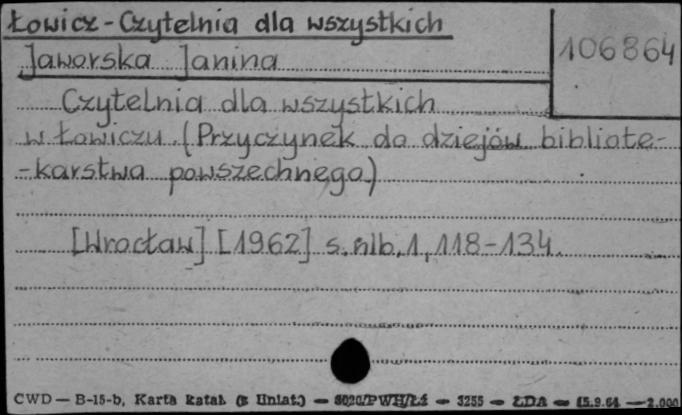 Łowicz - Czytelnia dla wszystkich
106864
Jaworska Janina
Czytelnia dla wszystkich
w Łowiczu. (Przyczynek do dziejów bibliote-
-karstwa powszechnego)
[Wrocław] [1962] s. nlb. 1, 118-134.
CWD — B-15-b, Karta katal. — 8020/PWH/Łź — 3255 — ŁDA — 15.9.64 — 2.000